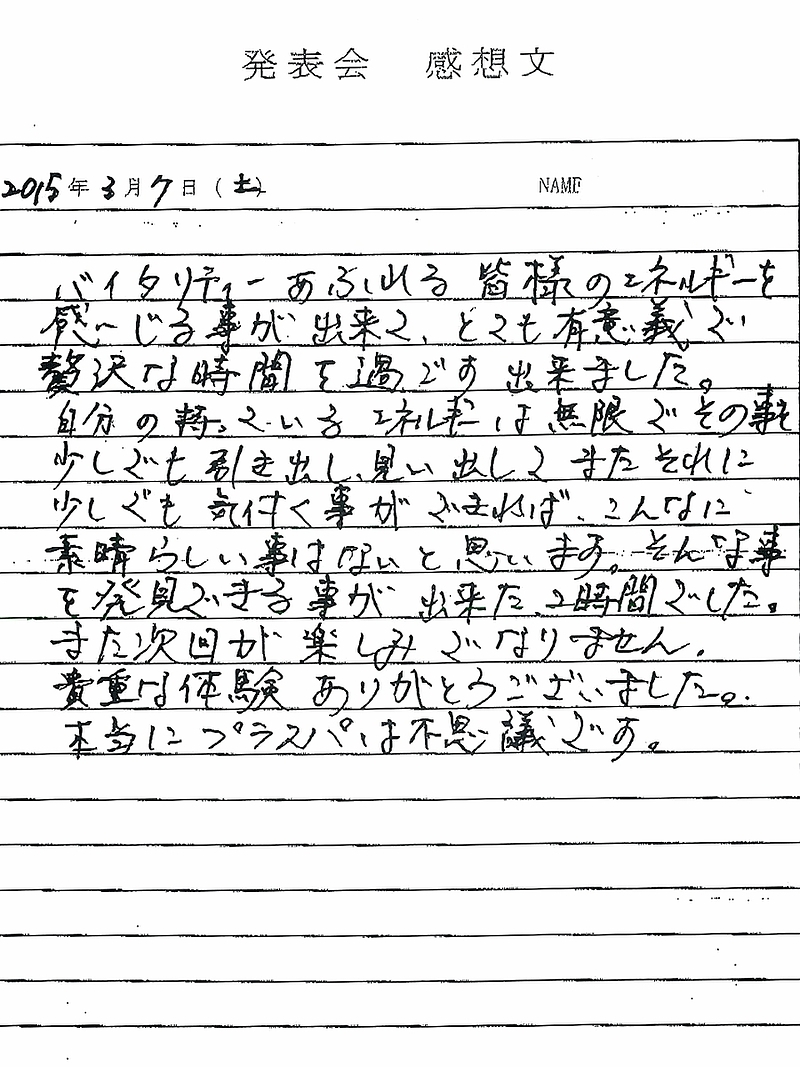 発表会 感想文
2015年3月7日（土） NAME
バイタリティーあふれる皆様のエネルギーを
感じる事が出来て、とても有意義で
贅沢な時間を過ごす出来ました。
自分の持っているエネルギーは無限でその事を
少しでも引き出し、見い出して またそれに
少しでも気付く事ができれば、こんなに
素晴らしい事はないと思います。そんな事
を発見できる事が出来た2時間でした。
また次回が楽しみでなりません。
貴重な体験ありがとうございました。
本当にプラスパは不思議です。